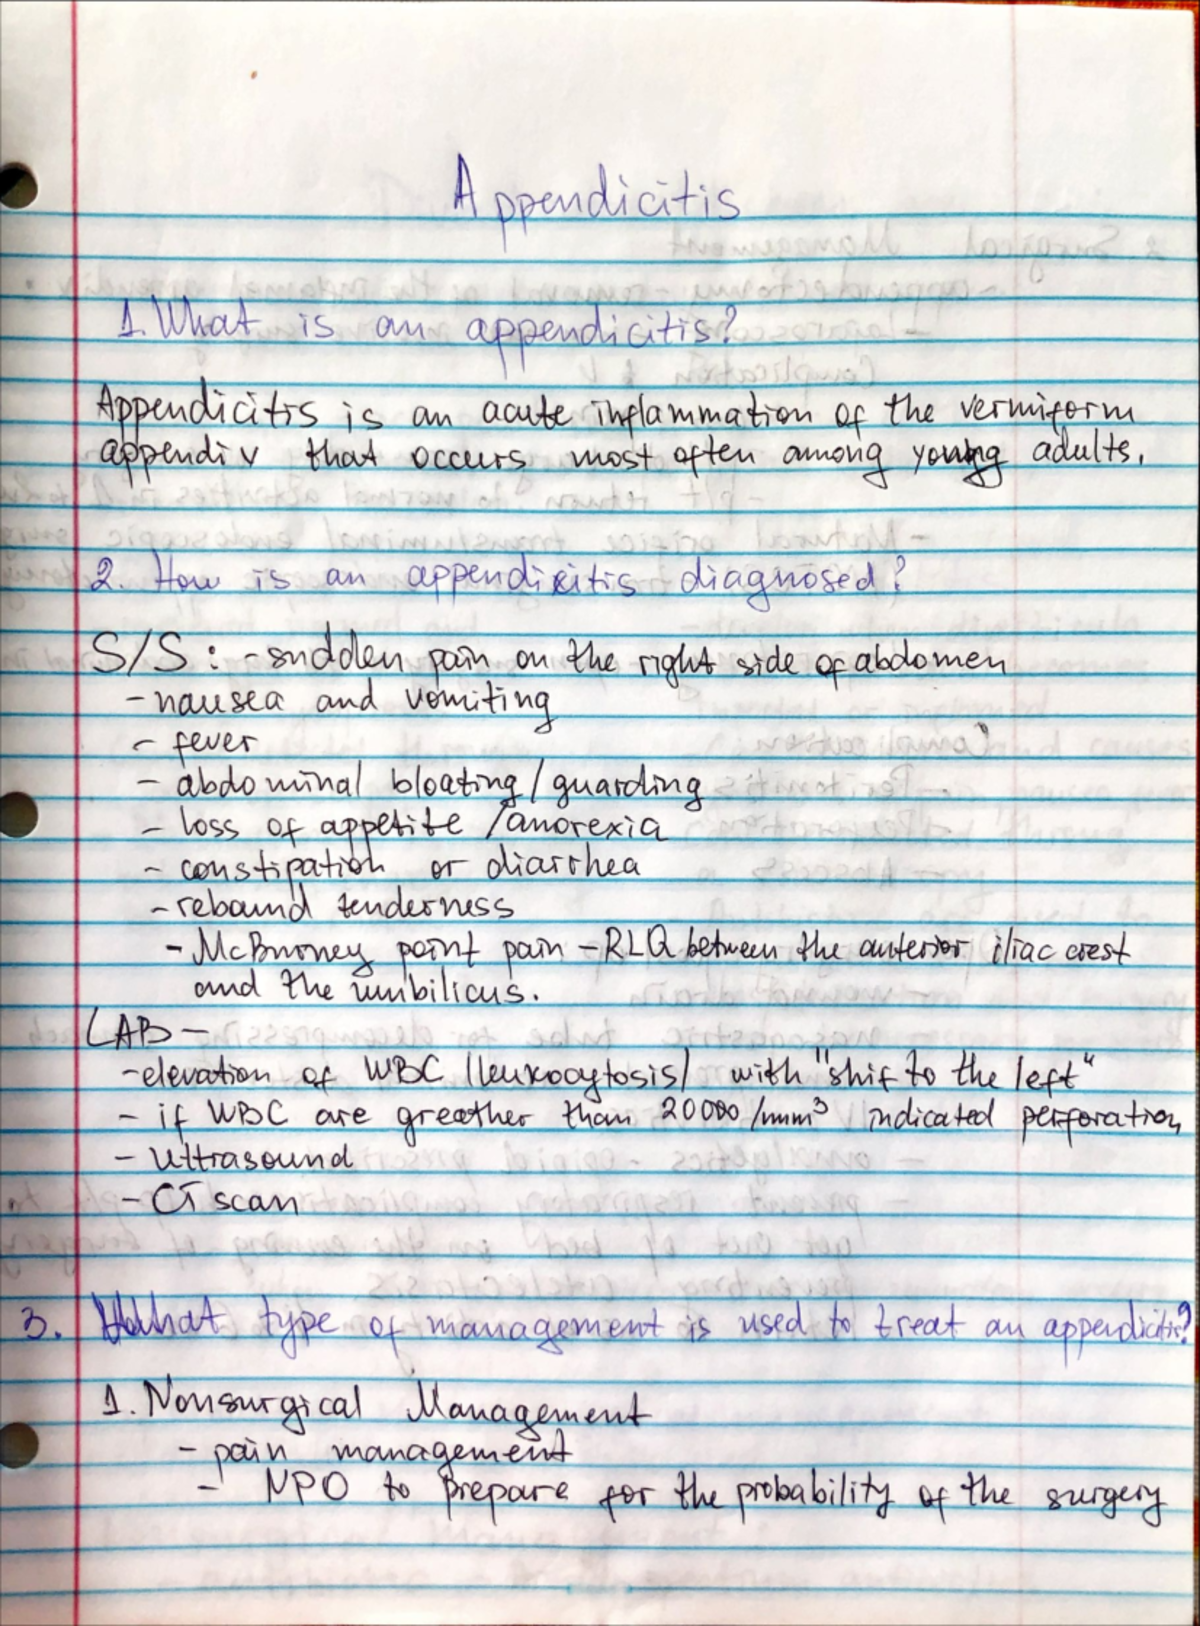 Appendicitis
1. What is an appendicitis?
Appendicitis is an acute inflammation of the vermiform
appendix that occurs most often among young adults.
2. How is an appendicitis diagnosed?
S/S: - sudden pain on the right side of abdomen
- nausea and vomiting
- fever
- abdominal bloating/guarding
- loss of appetite /anorexia
- constipation or diarrhea
- rebound tenderness
- McBurney point pain - RLQ between the anterior iliac crest
and the umbilicus.
LAB -
- elevation of WBC (leukocytosis) with "shif to the left"
- if WBC are greather than 20000/mm³ indicated perforation
- Ultrasound
- CT scan
3. What type of management is used to treat an appendicitis?
1. Nonsurgical Management
- pain management
- NPO to prepare for the probability of the surgery